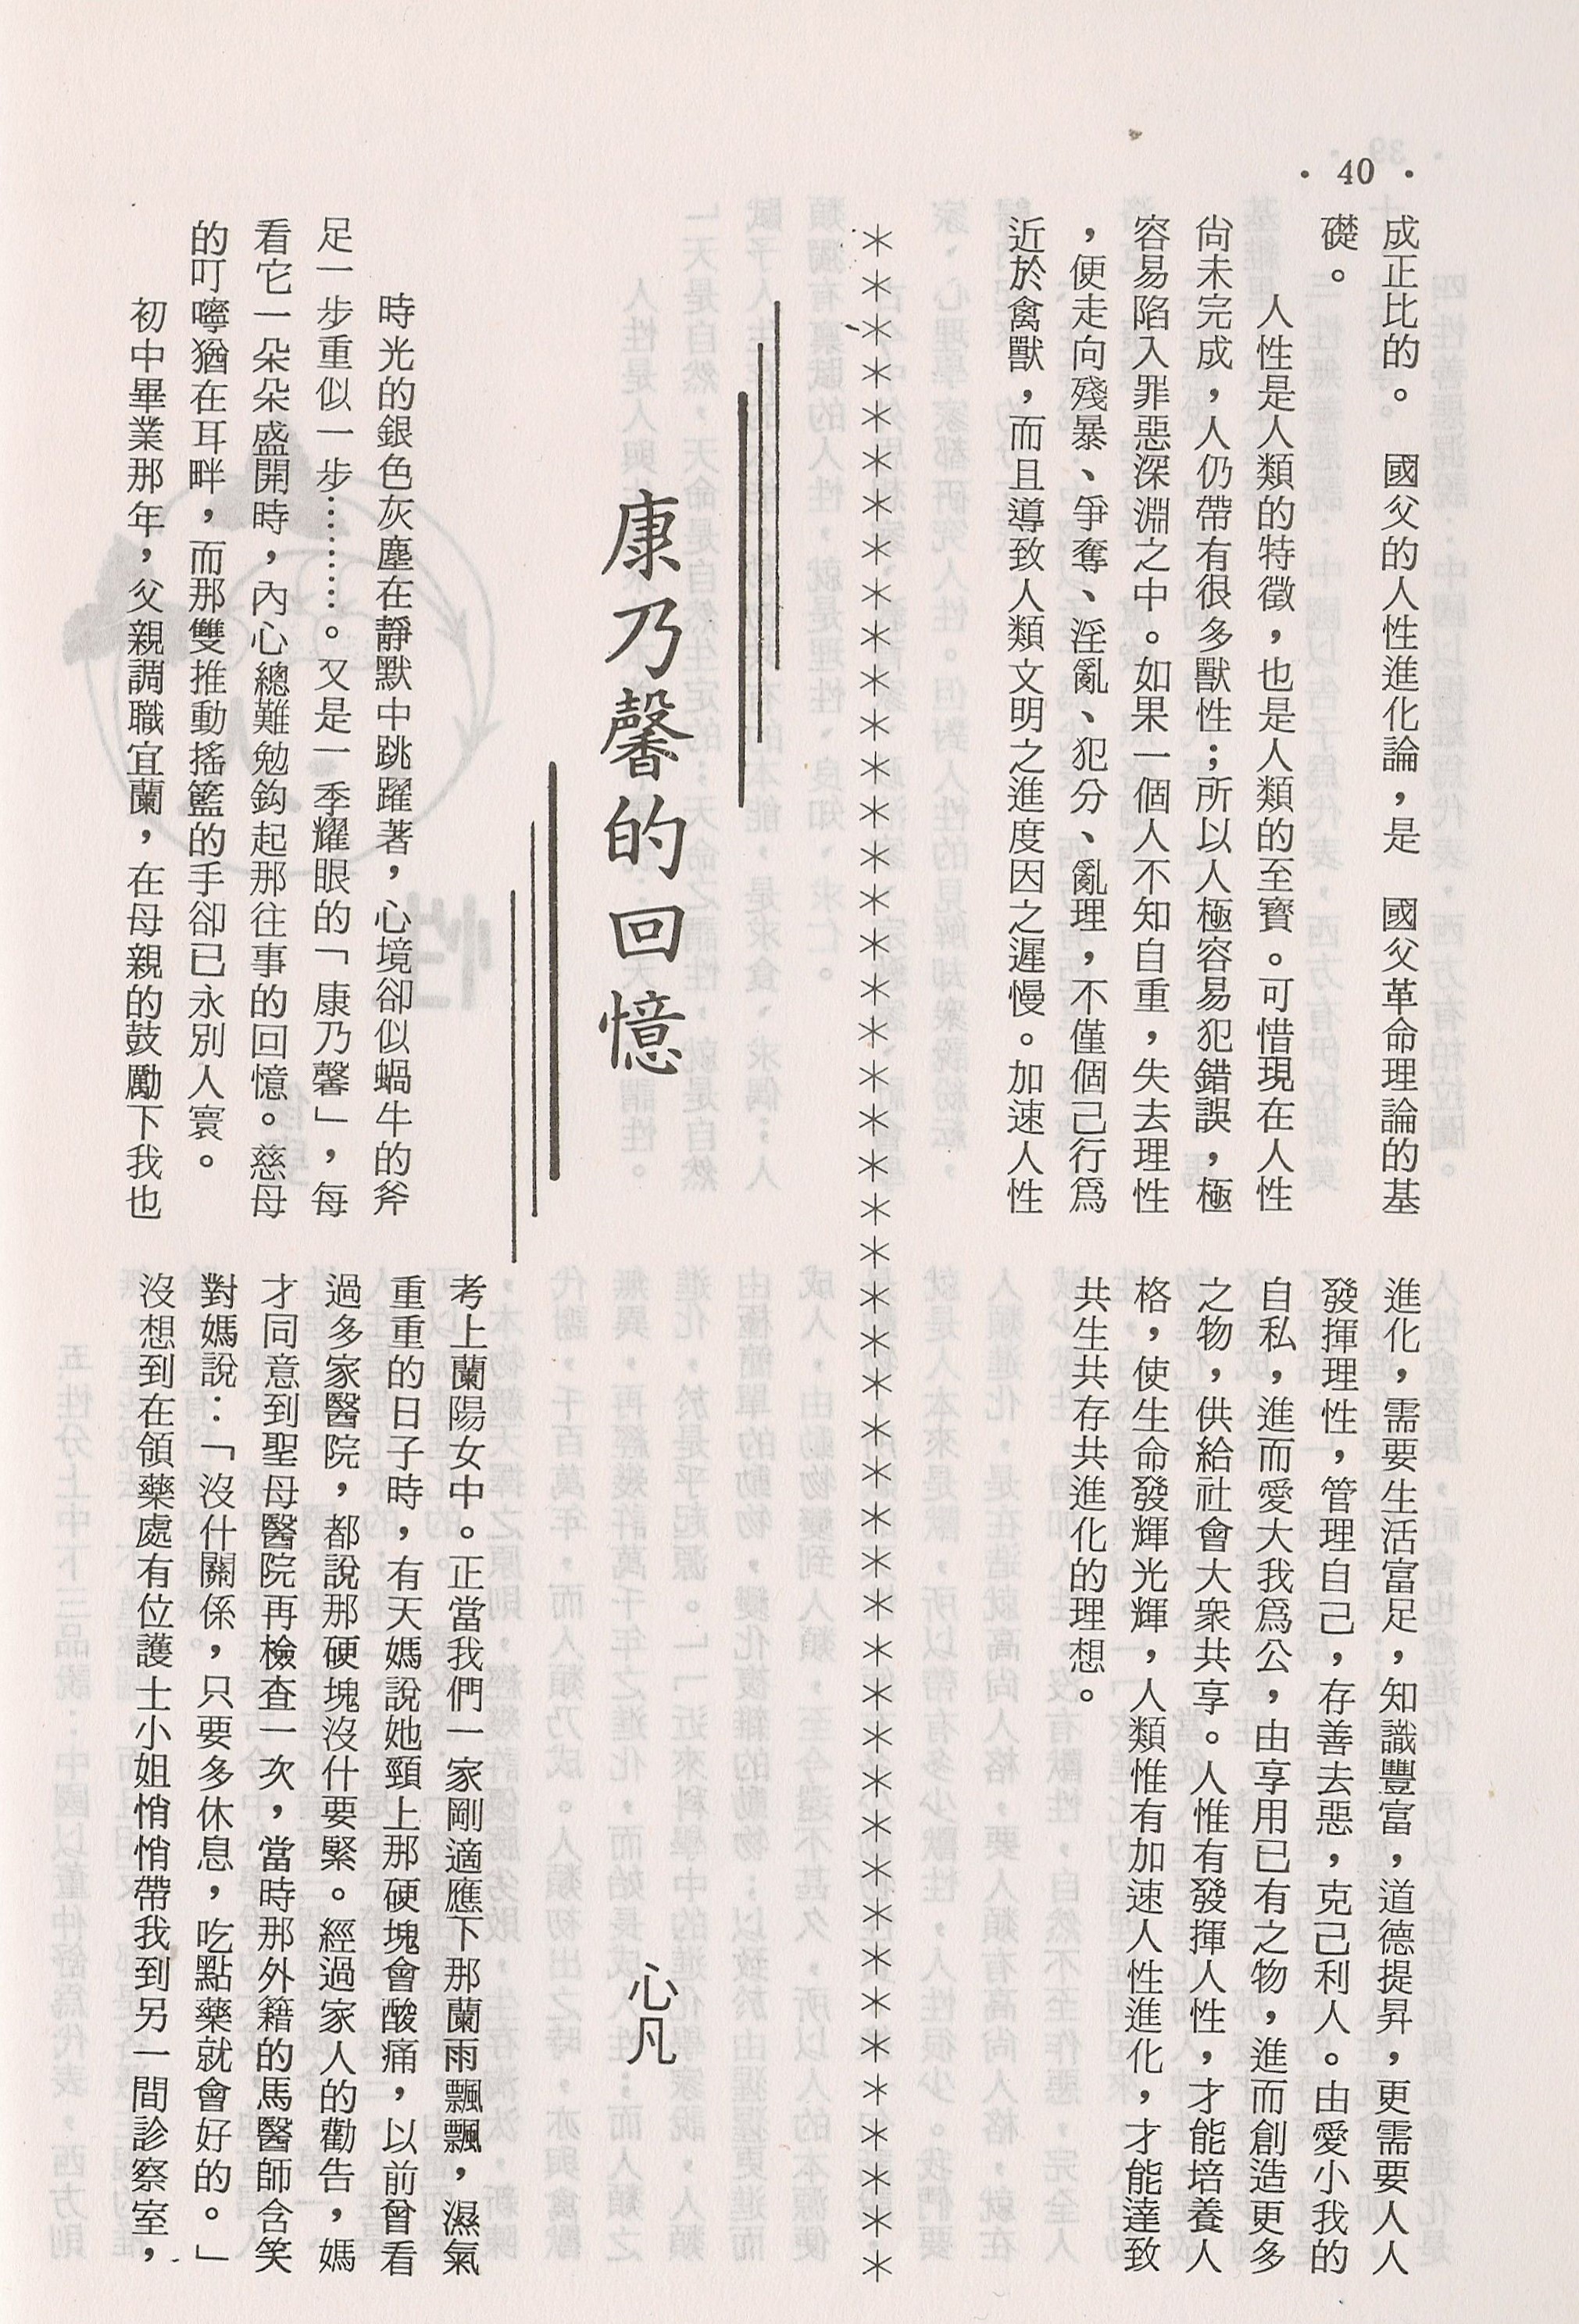 · 40 ·
成正比的。　國父的人性進化論，是　國父革命理論的基
礎。
人性是人類的特徵，也是人類的至寶。可惜現在人性
尙未完成，人仍帶有很多獸性；所以人極容易犯錯誤，極
容易陷入罪惡深淵之中。如果一個人不知自重，失去理性
，便走向殘暴、爭奪、淫亂、犯分、亂理，不僅個己行爲
近於禽獸，而且導致人類文明之進度因之遲慢。加速人性
進化，需要生活富足，知識豐富，道德提昇，更需要人人
發揮理性，管理自己，存善去惡，克己利人。由愛小我的
自私，進而愛大我爲公，由享用已有之物，進而創造更多
之物，供給社會大衆共享。人惟有發揮人性，才能培養人
格，使生命發輝光輝，人類惟有加速人性進化，才能達致
共生共存共進化的理想。
＊＊＊＊＊＊＊＊＊＊＊＊＊＊＊＊＊＊＊＊＊＊＊＊＊＊＊＊＊＊＊＊＊＊＊＊＊＊＊＊＊＊＊＊＊＊＊
康乃馨的回憶
心凡
時光的銀色灰塵在靜默中跳躍著，心境卻似蝸牛的斧
足一步重似一步………。又是一季耀眼的「康乃馨」，每
看它一朵朵盛開時，內心總難勉鈎起那往事的回憶。慈母
的叮嚀猶在耳畔，而那雙推動搖籃的手卻已永別人寰。
初中畢業那年，父親調職宜蘭，在母親的鼓勵下我也
考上蘭陽女中。正當我們一家剛適應下那蘭雨飄飄，濕氣
重重的日子時，有天媽說她頸上那硬塊會酸痛，以前曾看
過多家醫院，都說那硬塊沒什要緊。經過家人的勸告，媽
才同意到聖母醫院再檢查一次，當時那外籍的馬醫師含笑
對媽說：「沒什關係，只要多休息，吃點藥就會好的。」
沒想到在領藥處有位護士小姐悄悄帶我到另一間診察室，